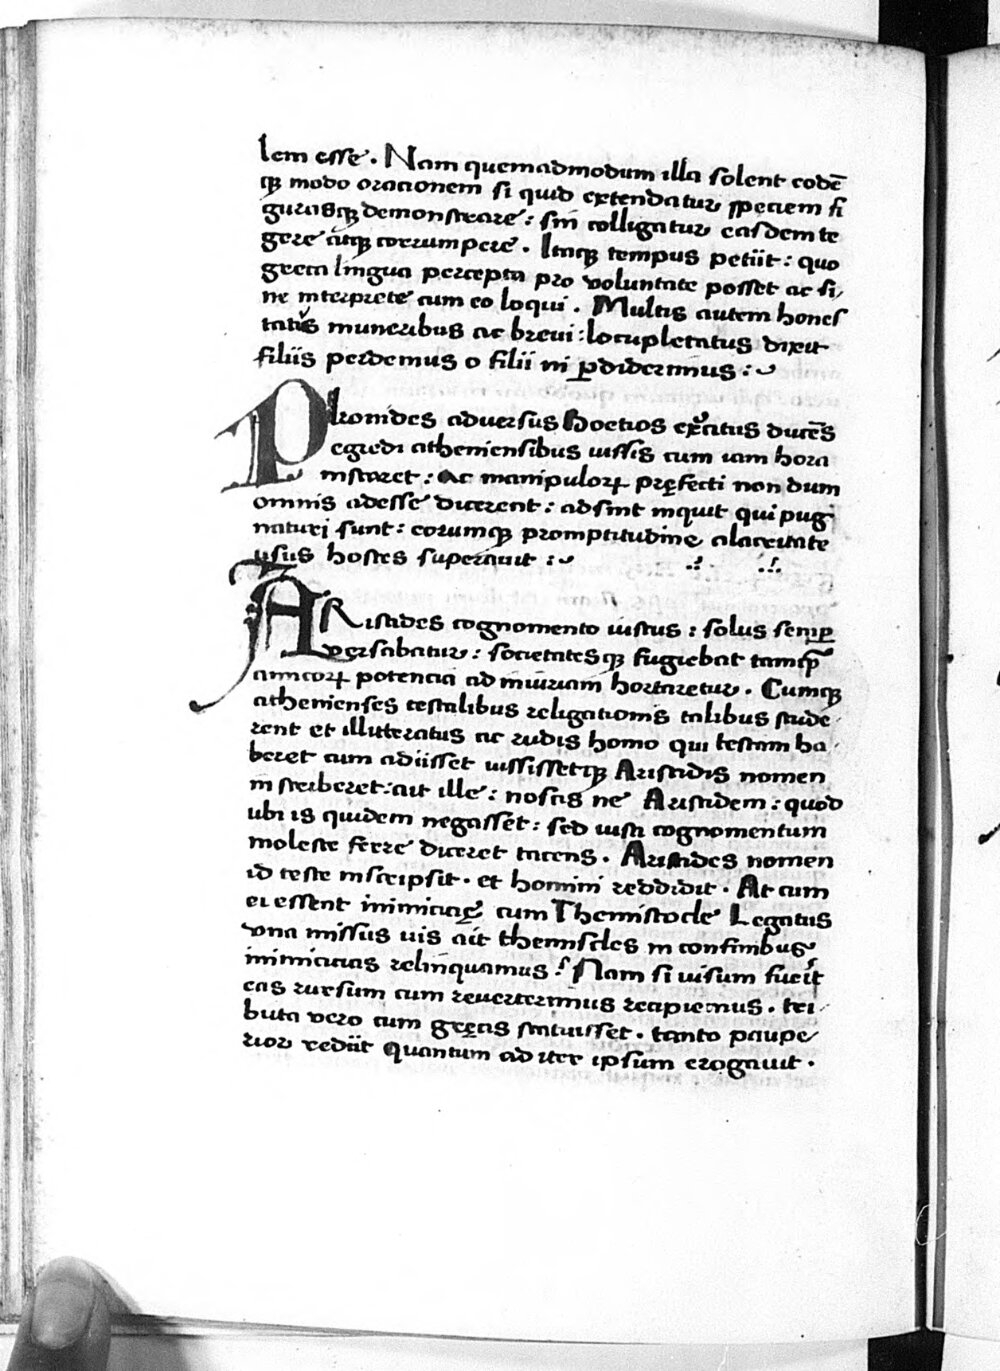 lem esse. Nam quemadmodum illa solent eodē
qꝫ modo orationem si quid extendatur speciem fi
gurasqꝫ demonstrare: sin colligatur easdem te
gere atqꝫ corrumpere. Itaqꝫ tempus petiit: quo
greca lingua percepta pro voluntate posset ac si/
ne interprete cum eo loqui. Multis autem hones
tatis muneribus ac brevi: locupletatus dixit
filiis perdemus o filii ni ꝑdiderimus:
Phronides adversus Boetios exercitus duces
egredi atheniensibus iussis cum iam hora
instaret: Ac manipuloꝝ pręfecti non dum
omnis adesse dicerent: adsint inquit qui pug
naturi sunt: eorumqꝫ promptitudine alacritate
usus hostes superauit:
ARistides cognomento iustus: solus semꝑ
versabatur: societatesqꝫ fugiebat tamqꝫ
amicoꝝ potencia ad iniuriam hortaretur. Cumqꝫ
athenienses testalibus religationis talibus stude
rent et illitteratus ac rudis homo qui testam ha
beret eum adiisset iussissetqꝫ Aristidis nomen
inscriberet: ait ille: noscis ne Aristidem: quod
ubi is quidem negasset: sed iusti cognomentum
moleste ferre diceret tacens. Aristides nomen
id teste inscripsit. et homini reddidit. At cum
ei essent inimicicię cum Themistocle Legatus
vna missus uis ait themiscles in confinibus
inimicicias relinquamus? Nam si uisum fuerit
eas rursum cum reverterimus recapiemus. tri
buta vero cum gręcis statuisset. tanto paupe
rior rediit quantum ad iter ipsum erogauit.